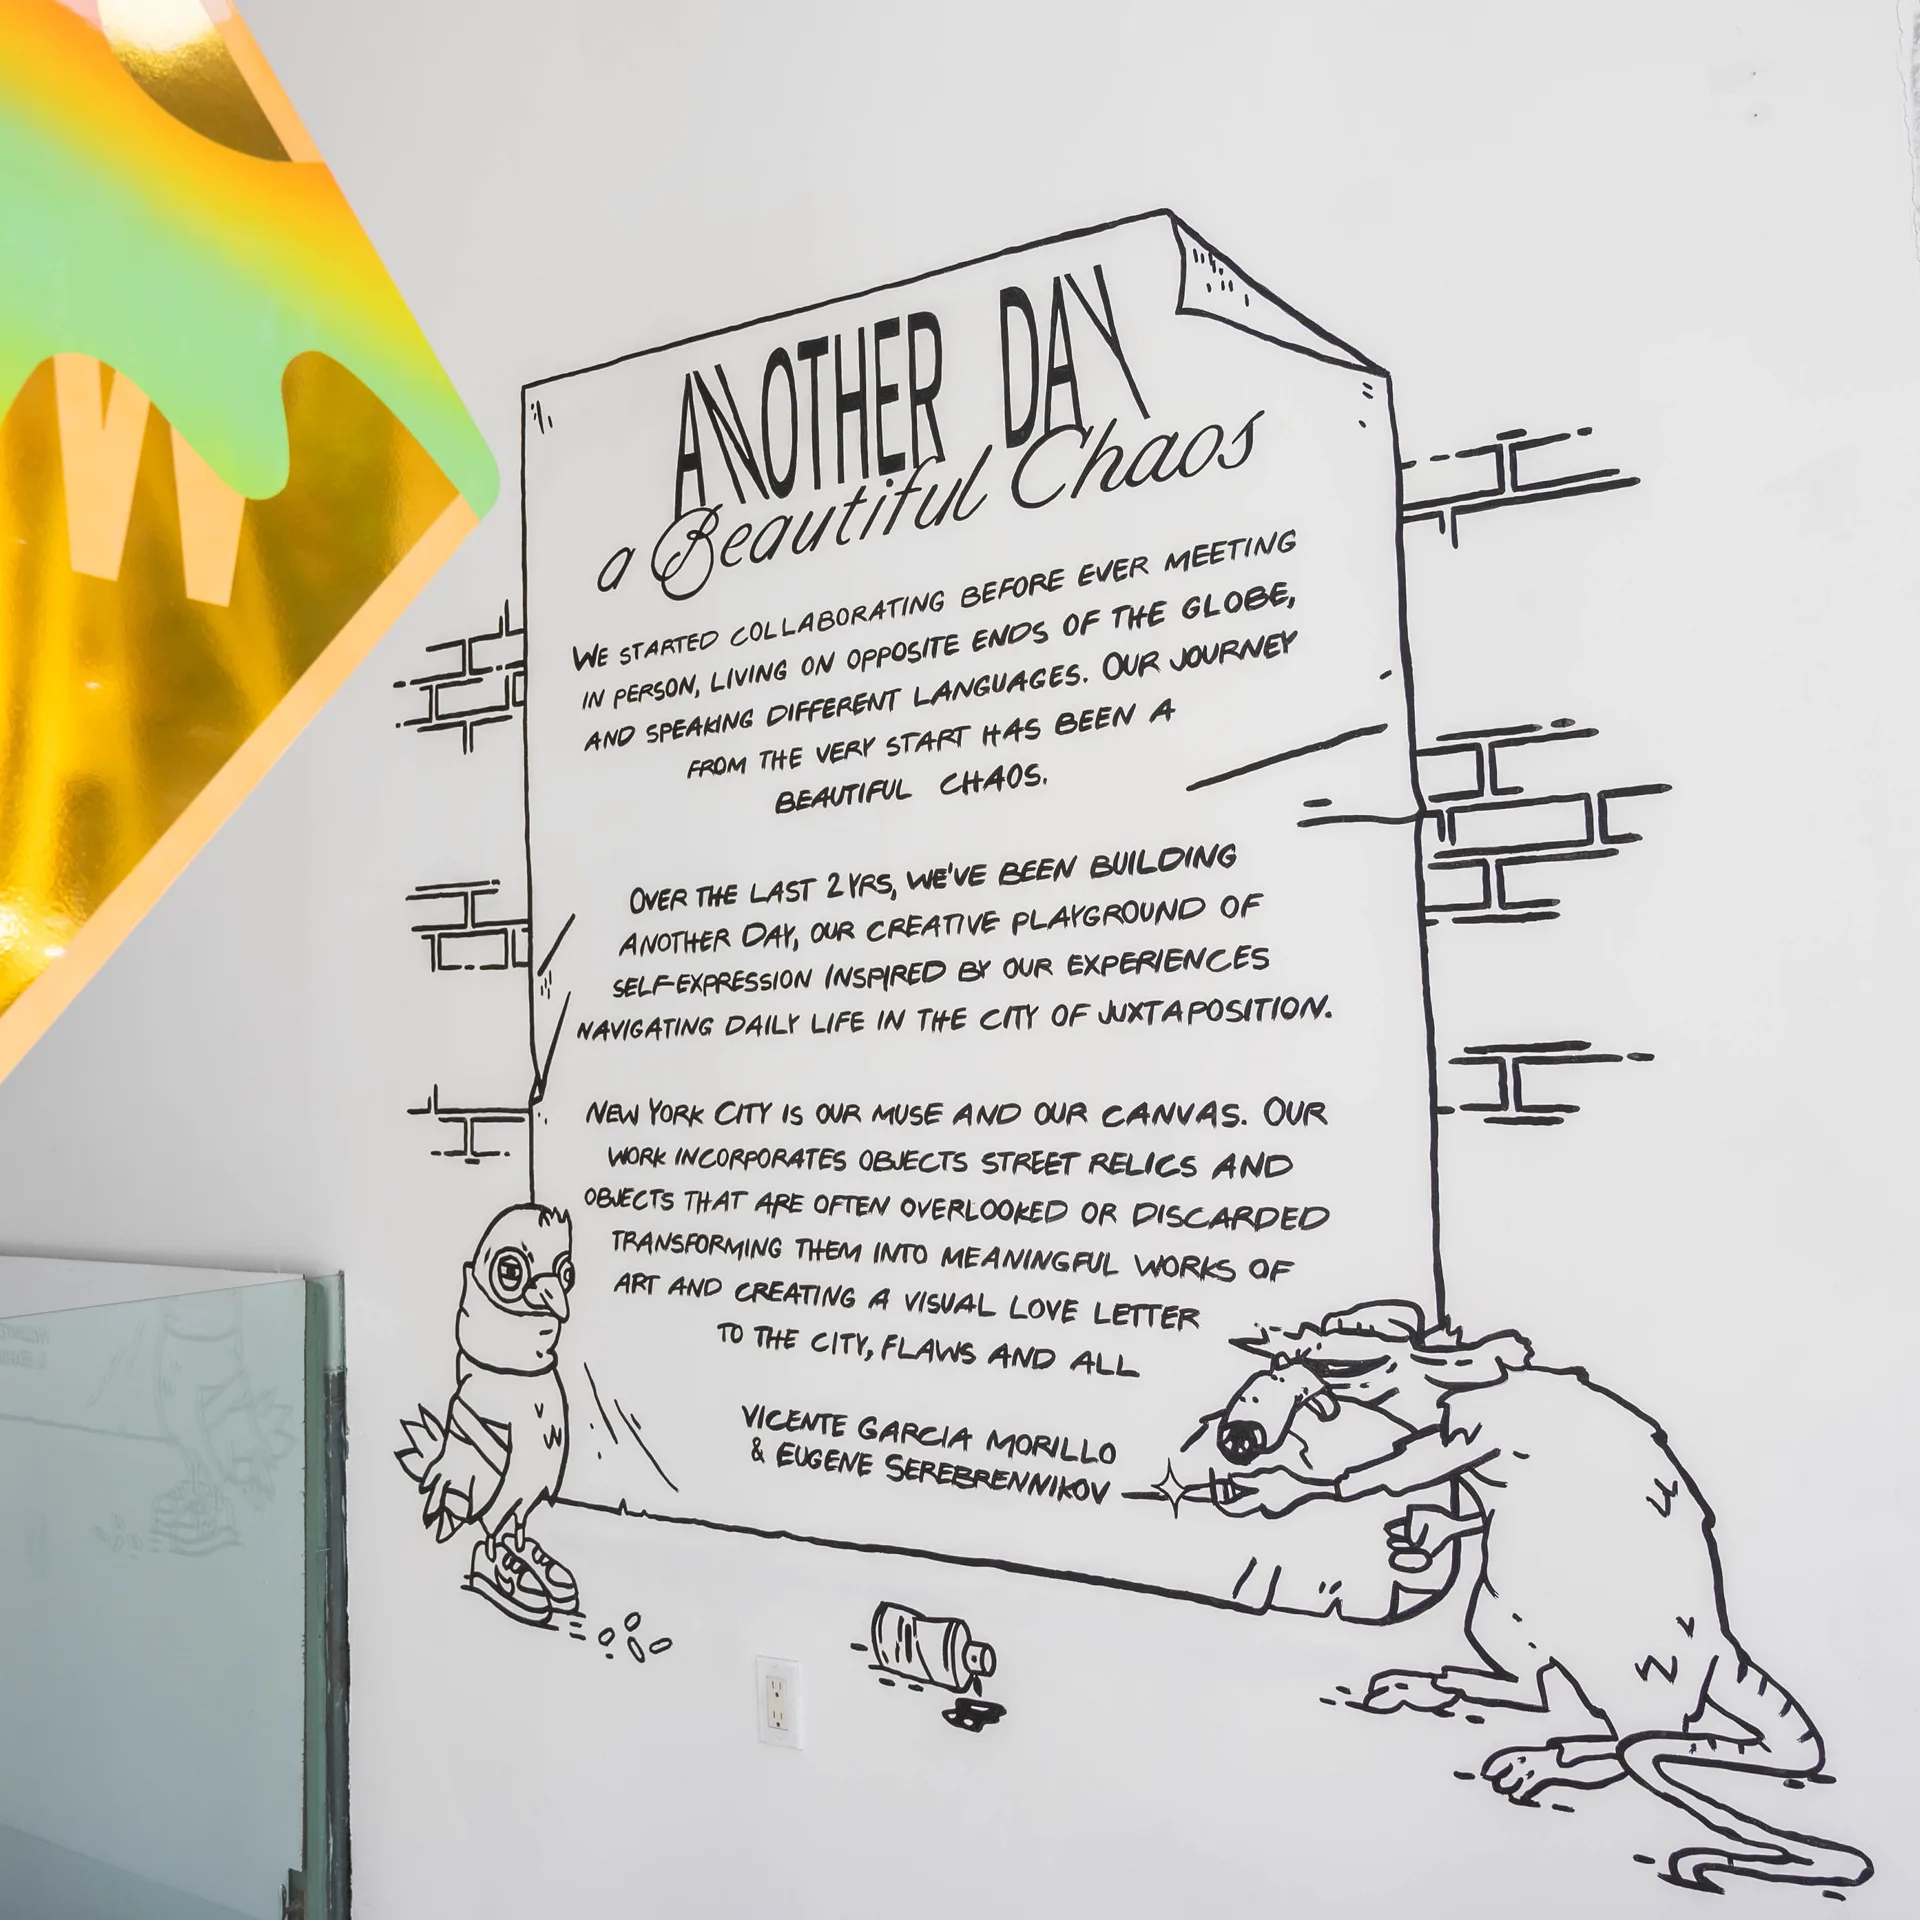 ANOTHER DAY
a Beautiful Chaos
WE STARTED COLLABORATING BEFORE EVER MEETING
IN PERSON, LIVING ON OPPOSITE ENDS OF THE GLOBE,
AND SPEAKING DIFFERENT LANGUAGES. OUR JOURNEY
FROM THE VERY START HAS BEEN A
BEAUTIFUL CHAOS.
OVER THE LAST 2 YRS, WE'VE BEEN BUILDING
ANOTHER DAY, OUR CREATIVE PLAYGROUND OF
SELF-EXPRESSION INSPIRED BY OUR EXPERIENCES
NAVIGATING DAILY LIFE IN THE CITY OF JUXTAPOSITION.
NEW YORK CITY IS OUR MUSE AND OUR CANVAS. OUR
WORK INCORPORATES OBJECTS STREET RELICS AND
OBJECTS THAT ARE OFTEN OVERLOOKED OR DISCARDED
TRANSFORMING THEM INTO MEANINGFUL WORKS OF
ART AND CREATING A VISUAL LOVE LETTER
TO THE CITY, FLAWS AND ALL
VICENTE GARCIA MORILLO
& EUGENE SEREBRENNIKOV